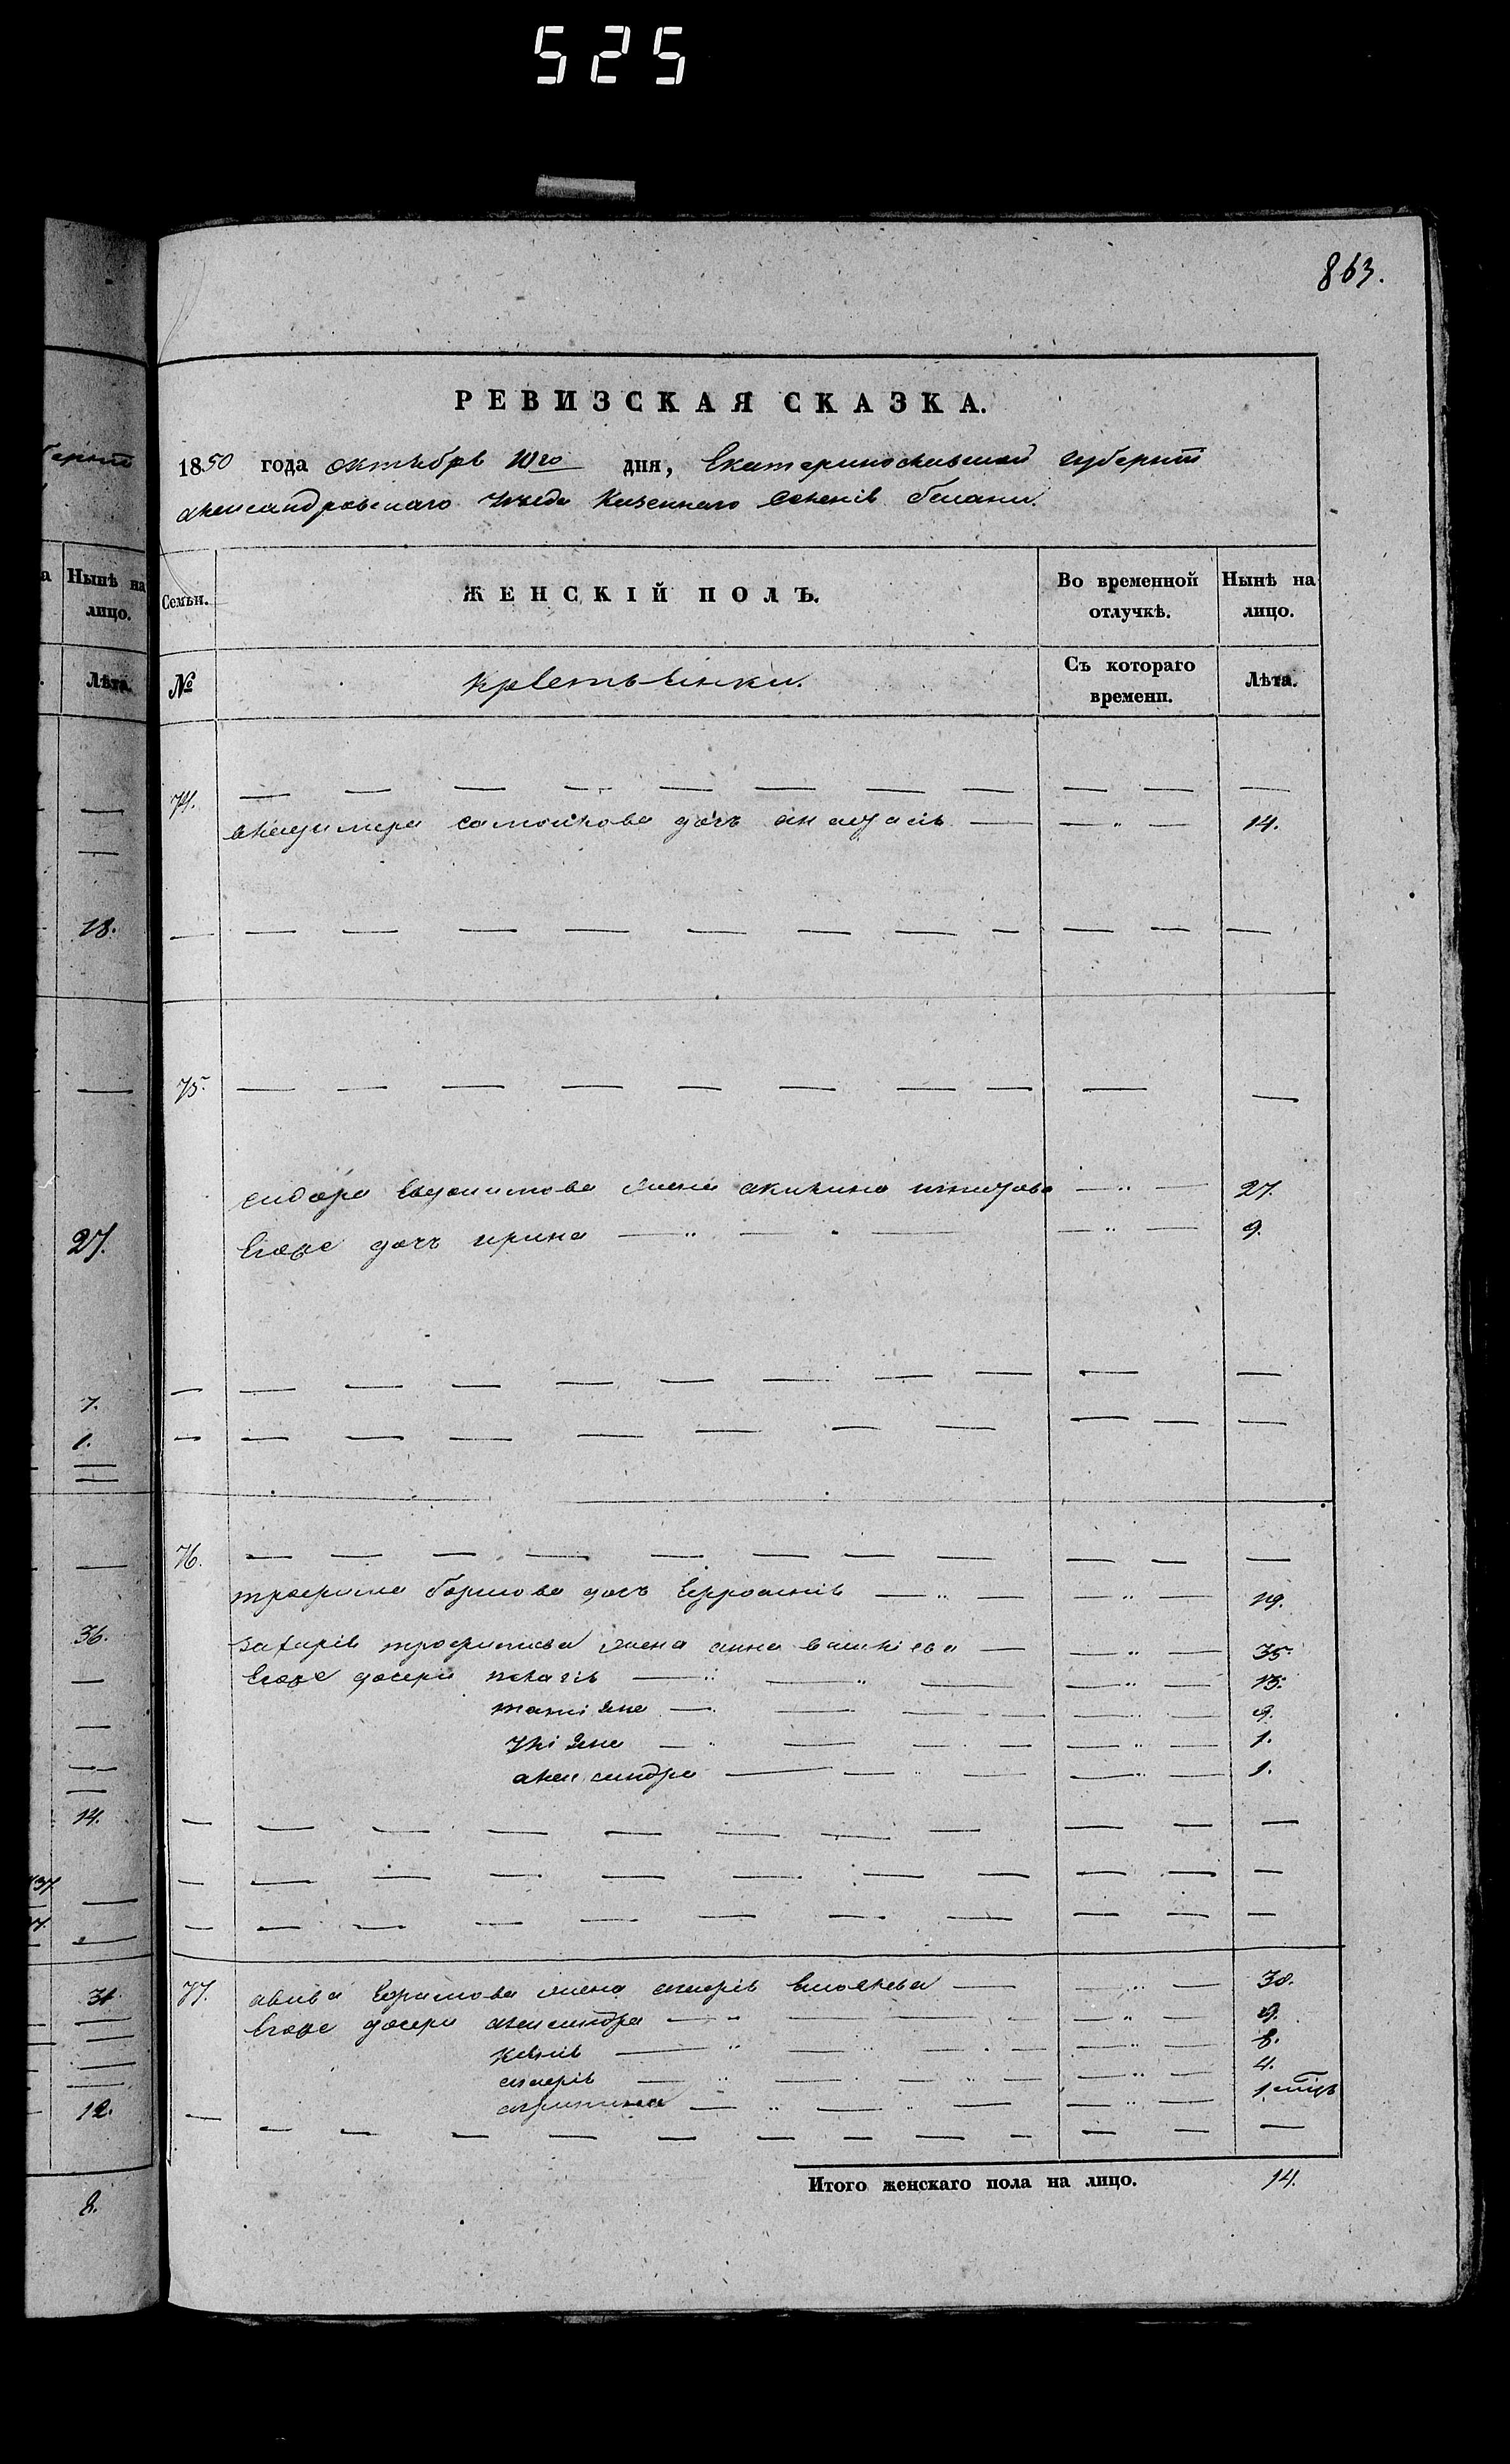 525
863.
РЕВИЗСКАЯ СКАЗКА.
1850 года октября 10го дня, Екатеринославской губернiи
александровскаго уезда Казеннаго Селенiя белани.
Семьи. ЖЕНСКІЙ ПОЛЪ. Во временной отлучкѣ. Нынѣ на лицо.
№ крестьянки. Съ котораго времени. Лѣта.
74. — — — — — — — —
самойлова дочь анастасiя — — " — 14.
— — — — — — — —
75. — — — — — — — —
сидора Евдокимова жена акилина — " — 27.
Егоже дочь ирина — " — — " — 9.
— — — — — — — —
— — — — — — — —
76. — — — — — — — —
трофима борисова дочь Ефросинiя — " — — " — 19.
Захарiя трофимова жена анна — — " — 35.
Егоже дочери пелагiя — " — — " — 13.
татiяна — — " — 9.
улiяна — — " — 1.
александра — — " — 1.
— — — — — — — —
— — — — — — — —
— — — — — — — —
77. Ефимова жена марiя — — " — 30.
Егоже дочери александра — " — — " — 9.
ксенiя — " — — " — 8.
марiя — " — — " — 4.
агрипина — " — — " — 1
— — — — — — — —
Итого женскаго пола на лицо. 14.
Нынѣ на лицо.
Лѣта.
18.
27.
7.
1.
36.
14.
31.
12.
8.